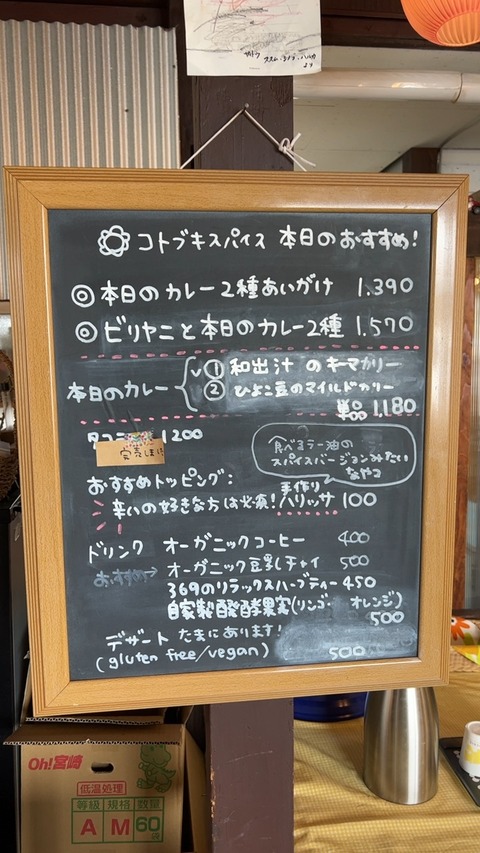 コトブキスパイス 本日のおすすめ!
◎本日のカレー2種あいがけ 1.390
◎ビリヤニと本日のカレー2種 1.570
本日のカレー
① 和出汁 のキーマカリー
② ひよこ豆のマイルドカリー
単品 1,180
タコラ 1200
完売しまし
食べるラー油の
スパイスバージョンみたい
なやつ
おすすめトッピング:
手作り
辛いの好きな方は必須!ハリッサ 100
ドリンク オーガニックコーヒー 400
おすすめ→ オーガニック豆乳チャイ 500
369のリラックスハーブティー 450
自家製醗酵果実(リンゴ・ オレンジ)
500
デザート たまにあります!
(gluten free/vegan) 500
Oh!宮崎
低温処理
等級 規格 数量
A M 60
袋